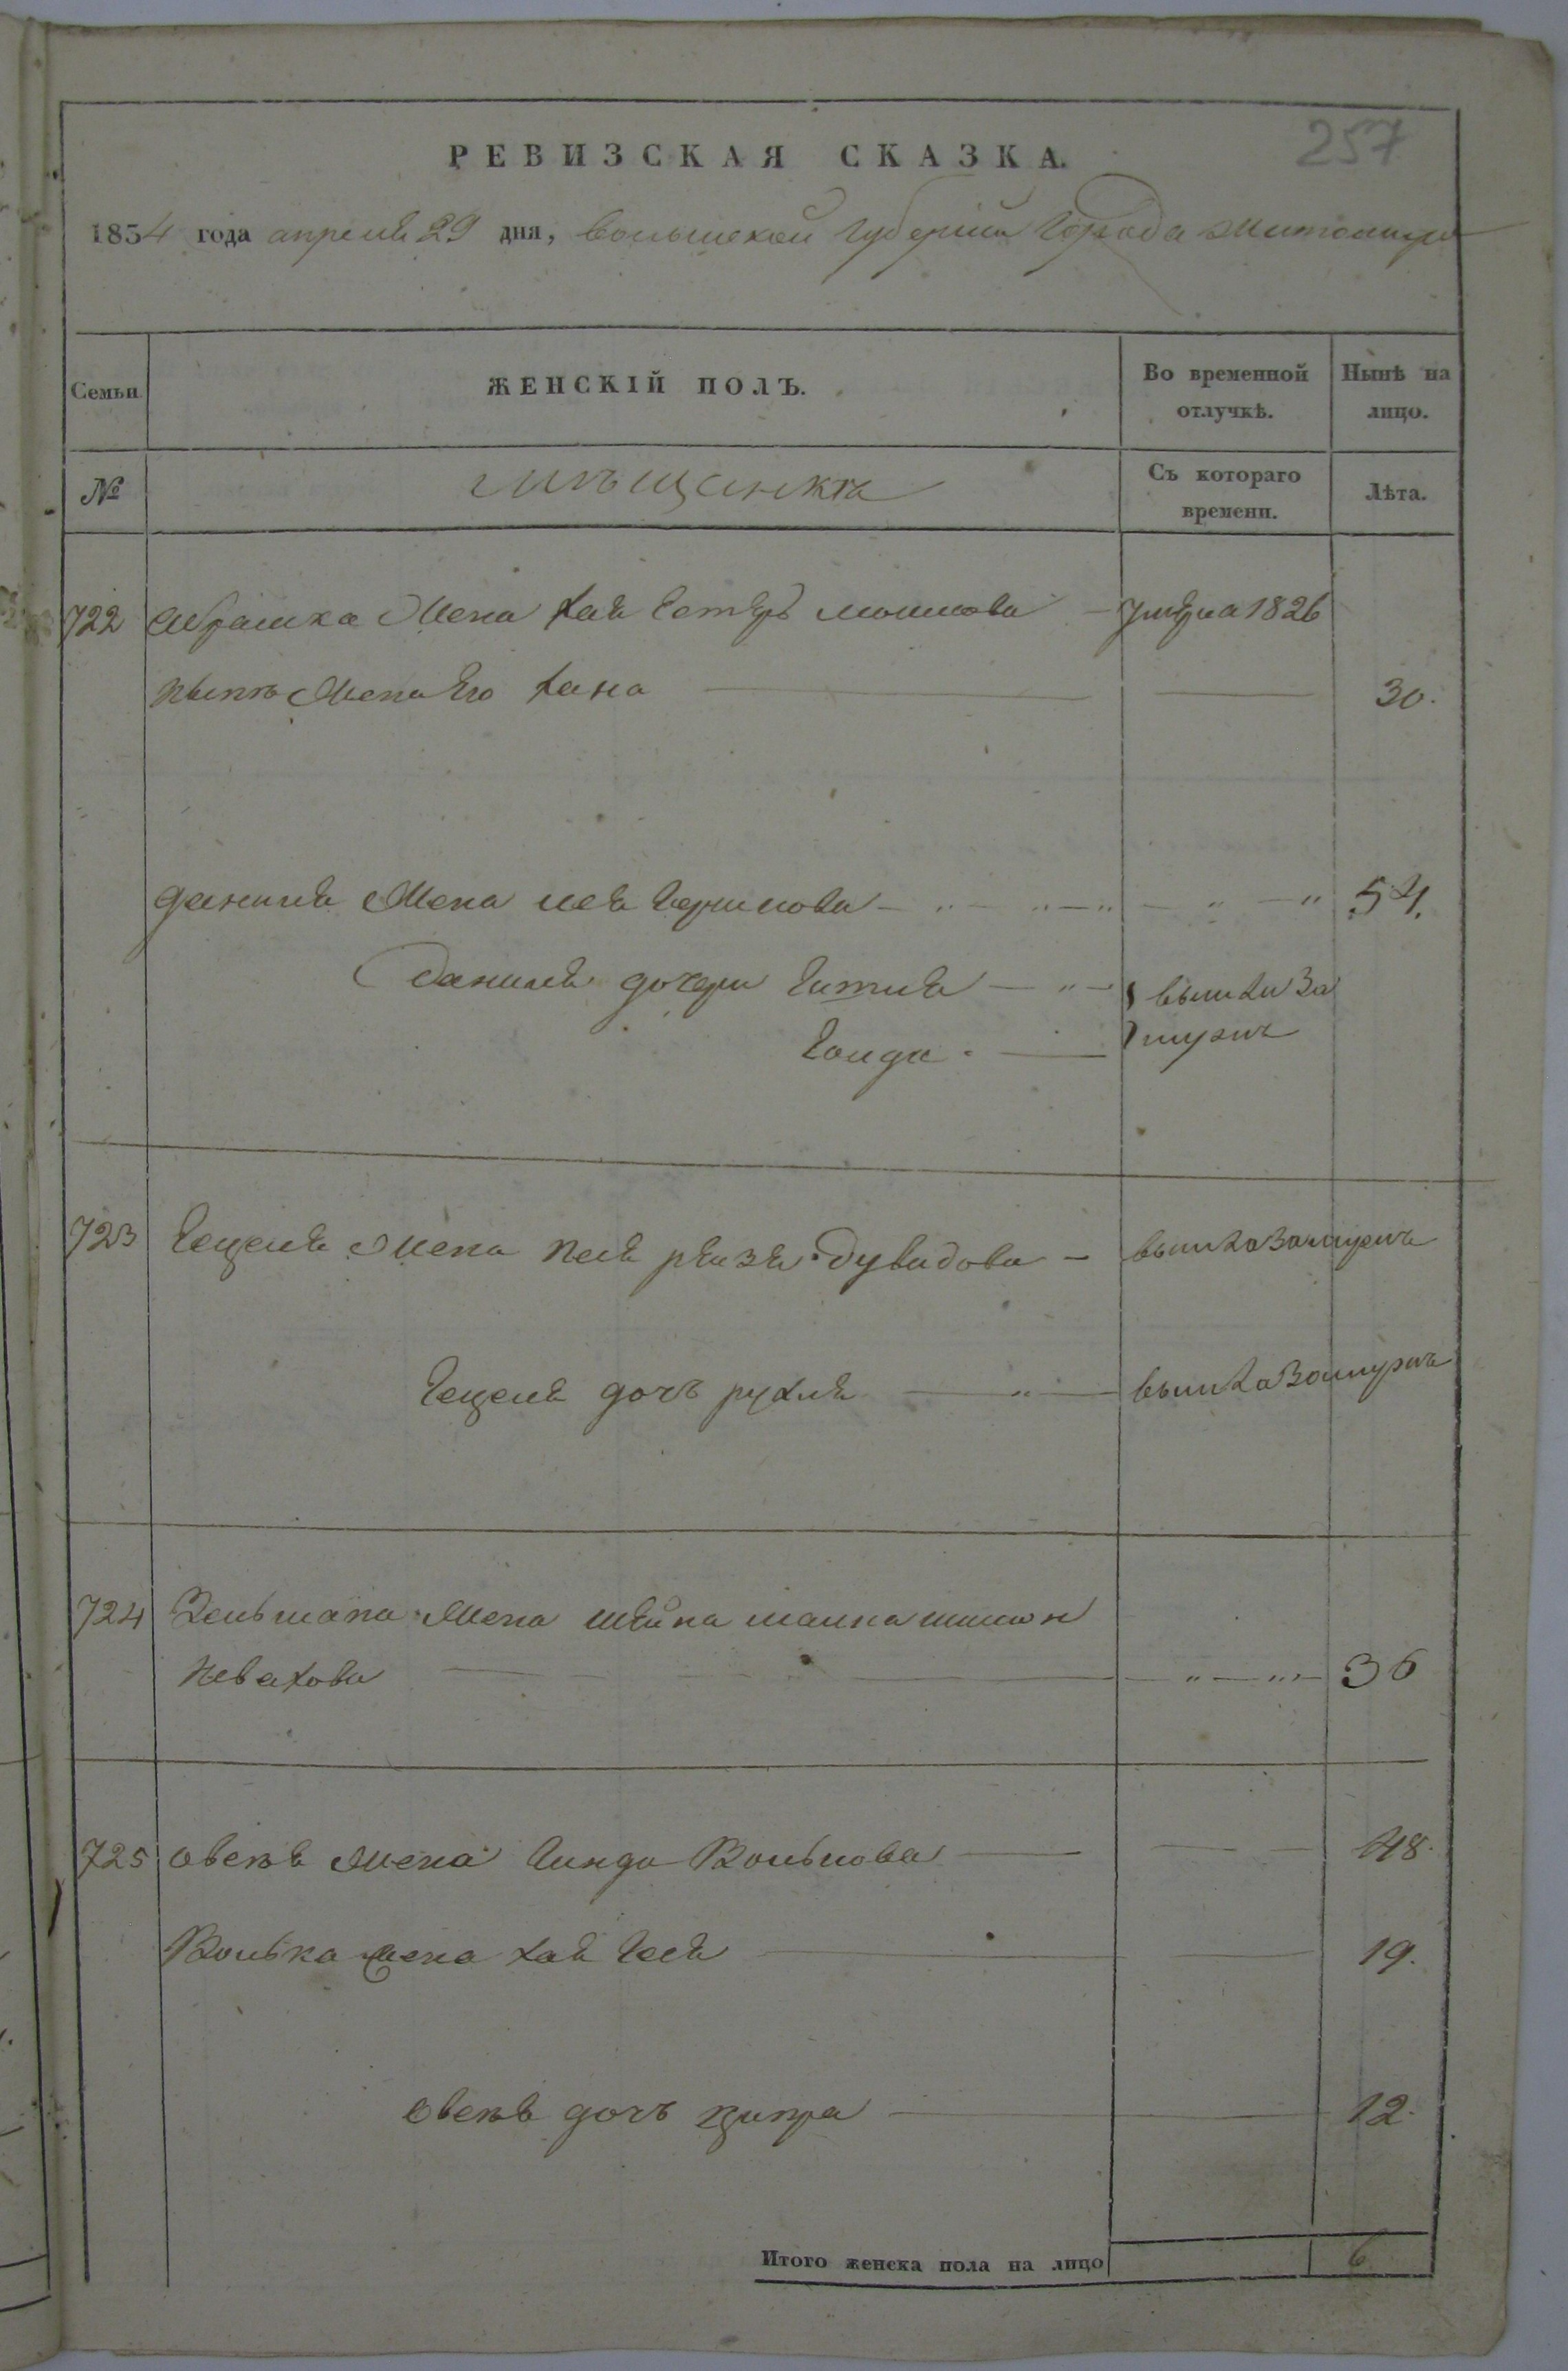 257
РЕВИЗСКАЯ СКАЗКА.
1854 года апреля 29 дня, волынской Губернии Города Житомира
Семьи ЖЕНСКІЙ ПОЛЪ. Во временной отлучкѣ. Нынѣ на лицо.
№ мѣщанкъ Съ котораго времени. Лѣта.
722 Абрамка Жена хая Естеръ мошкова — умерла 1826
Жена Его хана 30.
данила Жена лея Берикова 54.
Данила дочери Гитля вышли За
Голда мужъ
723 Гецеля Жена песя рейзя дувидова — вышла Замужъ
Гецеля дочъ рухля вышла Замужъ
724 Зельмана Жена шейна малка шимон
Невахова 36
725 овсея Жена Гинда Волькова 48.
Волька жена хая Гея 19.
овсея дочъ ципра 12.
Итого женска пола на лицо 6